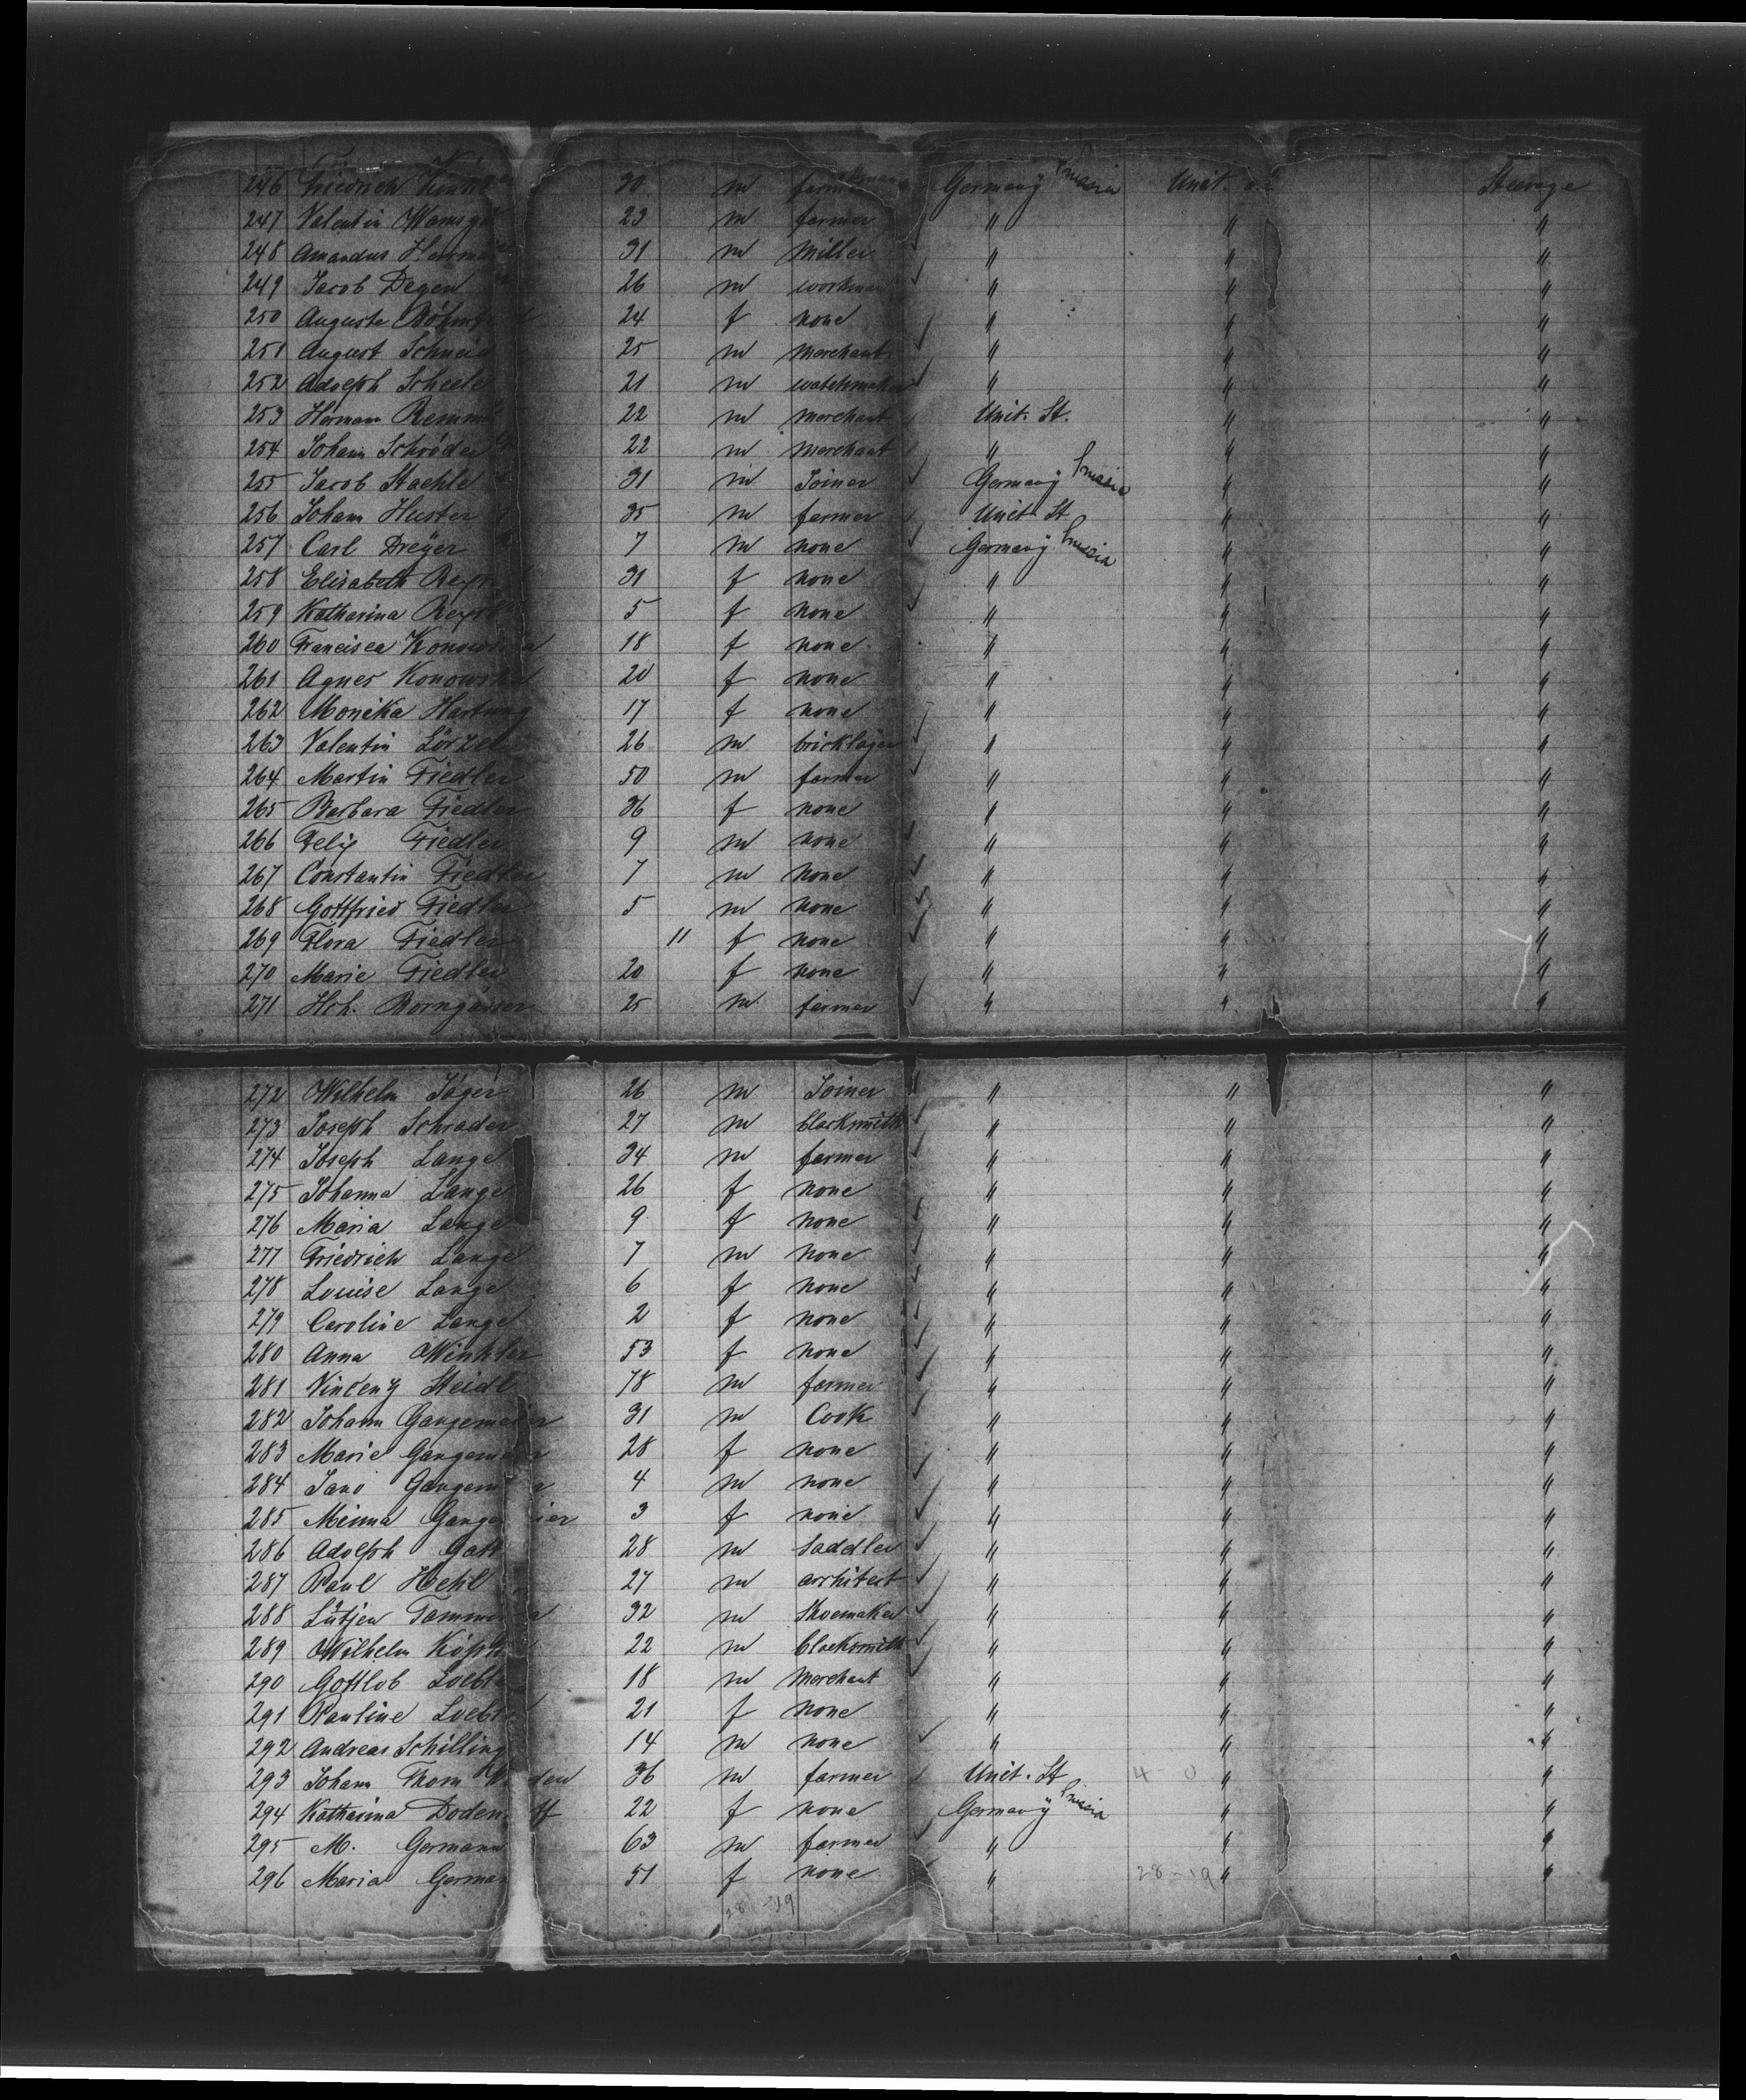 246 Friedrich 30 m farmer Germany Prussia Unit. Steerage
247 Valentin 23 m farmer " " "
248 Amandus 31 m Miller " " "
249 Jacob Degen 26 m workman " " "
250 Auguste 24 f none " " "
251 August 25 m Merchant " " "
252 Adolph Scheele 21 m watchmaker " " "
253 Herman 22 m merchant Unit. St. " "
254 Johann Schröder 22 m Merchant " " "
255 Jacob Staehle 31 m Joiner Germany Prussia " "
256 Johann Huster 35 m farmer Unit. St " "
257 Carl Dreyer 7 m none Germany Prussia " "
258 Elisabeth 31 f none " " "
259 Katharina 5 f none " " "
260 Francisca 18 f none " " "
261 Agnes 20 f none " " "
262 Monika Hartung 17 f none " " "
263 Valentin 26 m bricklayer " " "
264 Martin Fiedler 50 m farmer " " "
265 Barbara Fiedler 36 f none " " "
266 Felix Fiedler 9 m none " " "
267 Constantin Fiedler 7 m none " " "
268 Gottfried Fiedler 5 m none " " "
269 Flora Fiedler 11 f none " " "
270 Marie Fiedler 20 f none " " "
271 Hch. Borngässer 25 m farmer " " "
272 Wilhelm Jäger 26 m Joiner " " "
273 Joseph Schrader 27 m blacksmith " " "
274 Joseph Lange 34 m farmer " " "
275 Johanna Lange 26 f none " " "
276 Maria Lange 9 f none " " "
277 Friedrich Lange 7 m none " " "
278 Louise Lange 6 f none " " "
279 Caroline Lange 2 f none " " "
280 Anna Winkler 53 f none " " "
281 Vincenz Steidl 78 m farmer " " "
282 Johann 31 m Cook " " "
283 Marie 28 f none " " "
284 4 m none " " "
285 Minna 3 f none " " "
286 Adolph 28 m Saddler " " "
287 Paul 27 m architect " " "
288 Lütjen 32 m Shoemaker " " "
289 Wilhelm 22 m blacksmith " " "
290 Gottlob 18 m Merchant " " "
291 Pauline 21 f none " " "
292 Andreas Schilling 14 m none " " "
293 Johann Thom 36 m farmer Unit. St 4 - 0 " "
294 Katharina 22 f none Germany Prussia " "
295 M. Germann 63 m farmer " " "
296 Maria 51 f none " 28-19 " "
28-19